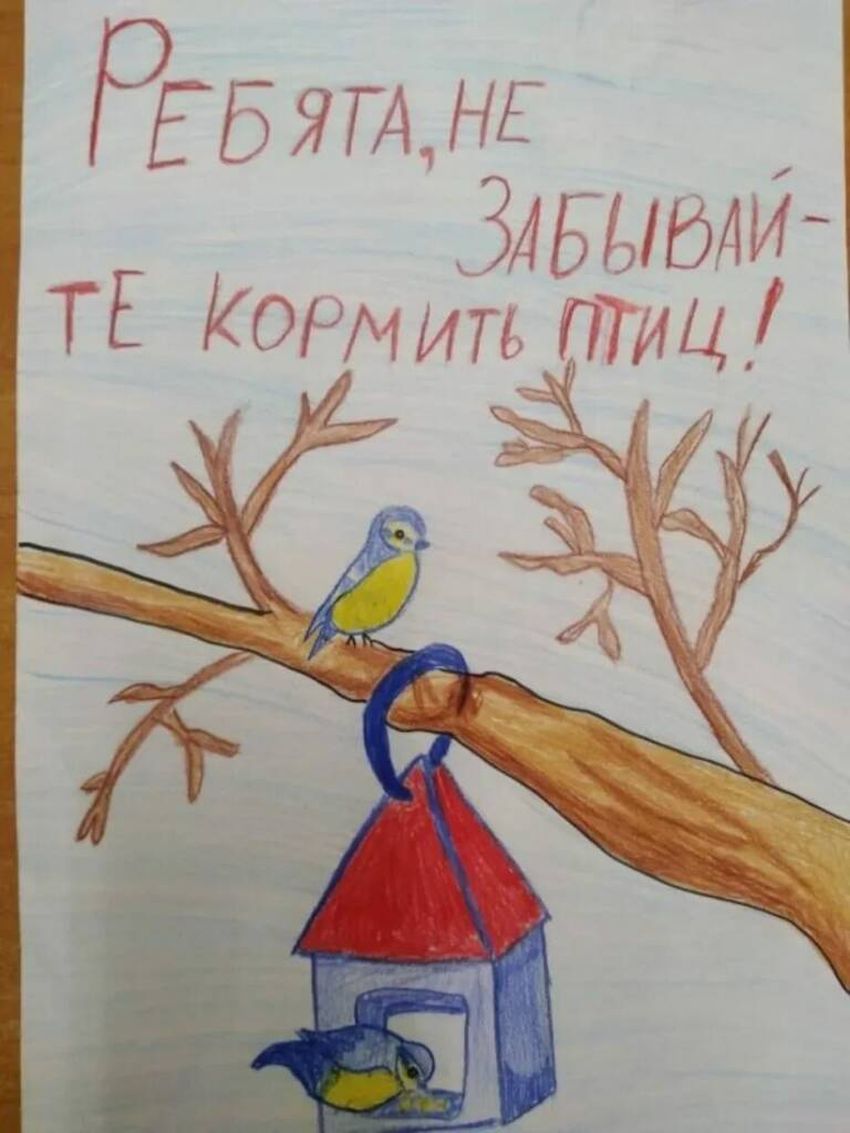 РЕБЯТА, НЕ
ЗАБЫВАЙ-
ТЕ КОРМИТЬ ПТИЦ!